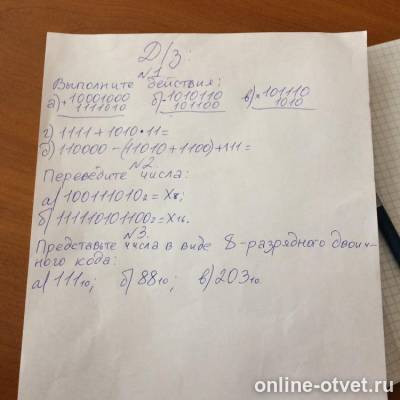 Д/з:
№1
Выполните действия:
а) + 10001000 б) - 1010110 в) × 101110
1111010 101100 1010
г) 1111 + 1010 · 11 =
д) 110000 - (11010 + 1100) + 111 =
№2
Переведите числа:
а) 100111010₂ = X₈;
б) 111110101100₂ = X₁₆.
№3.
Представьте числа в виде 8-разрядного двоич-
ного кода:
а) 111₁₀; б) 88₁₀; в) 203₁₀.
online-otvet.ru